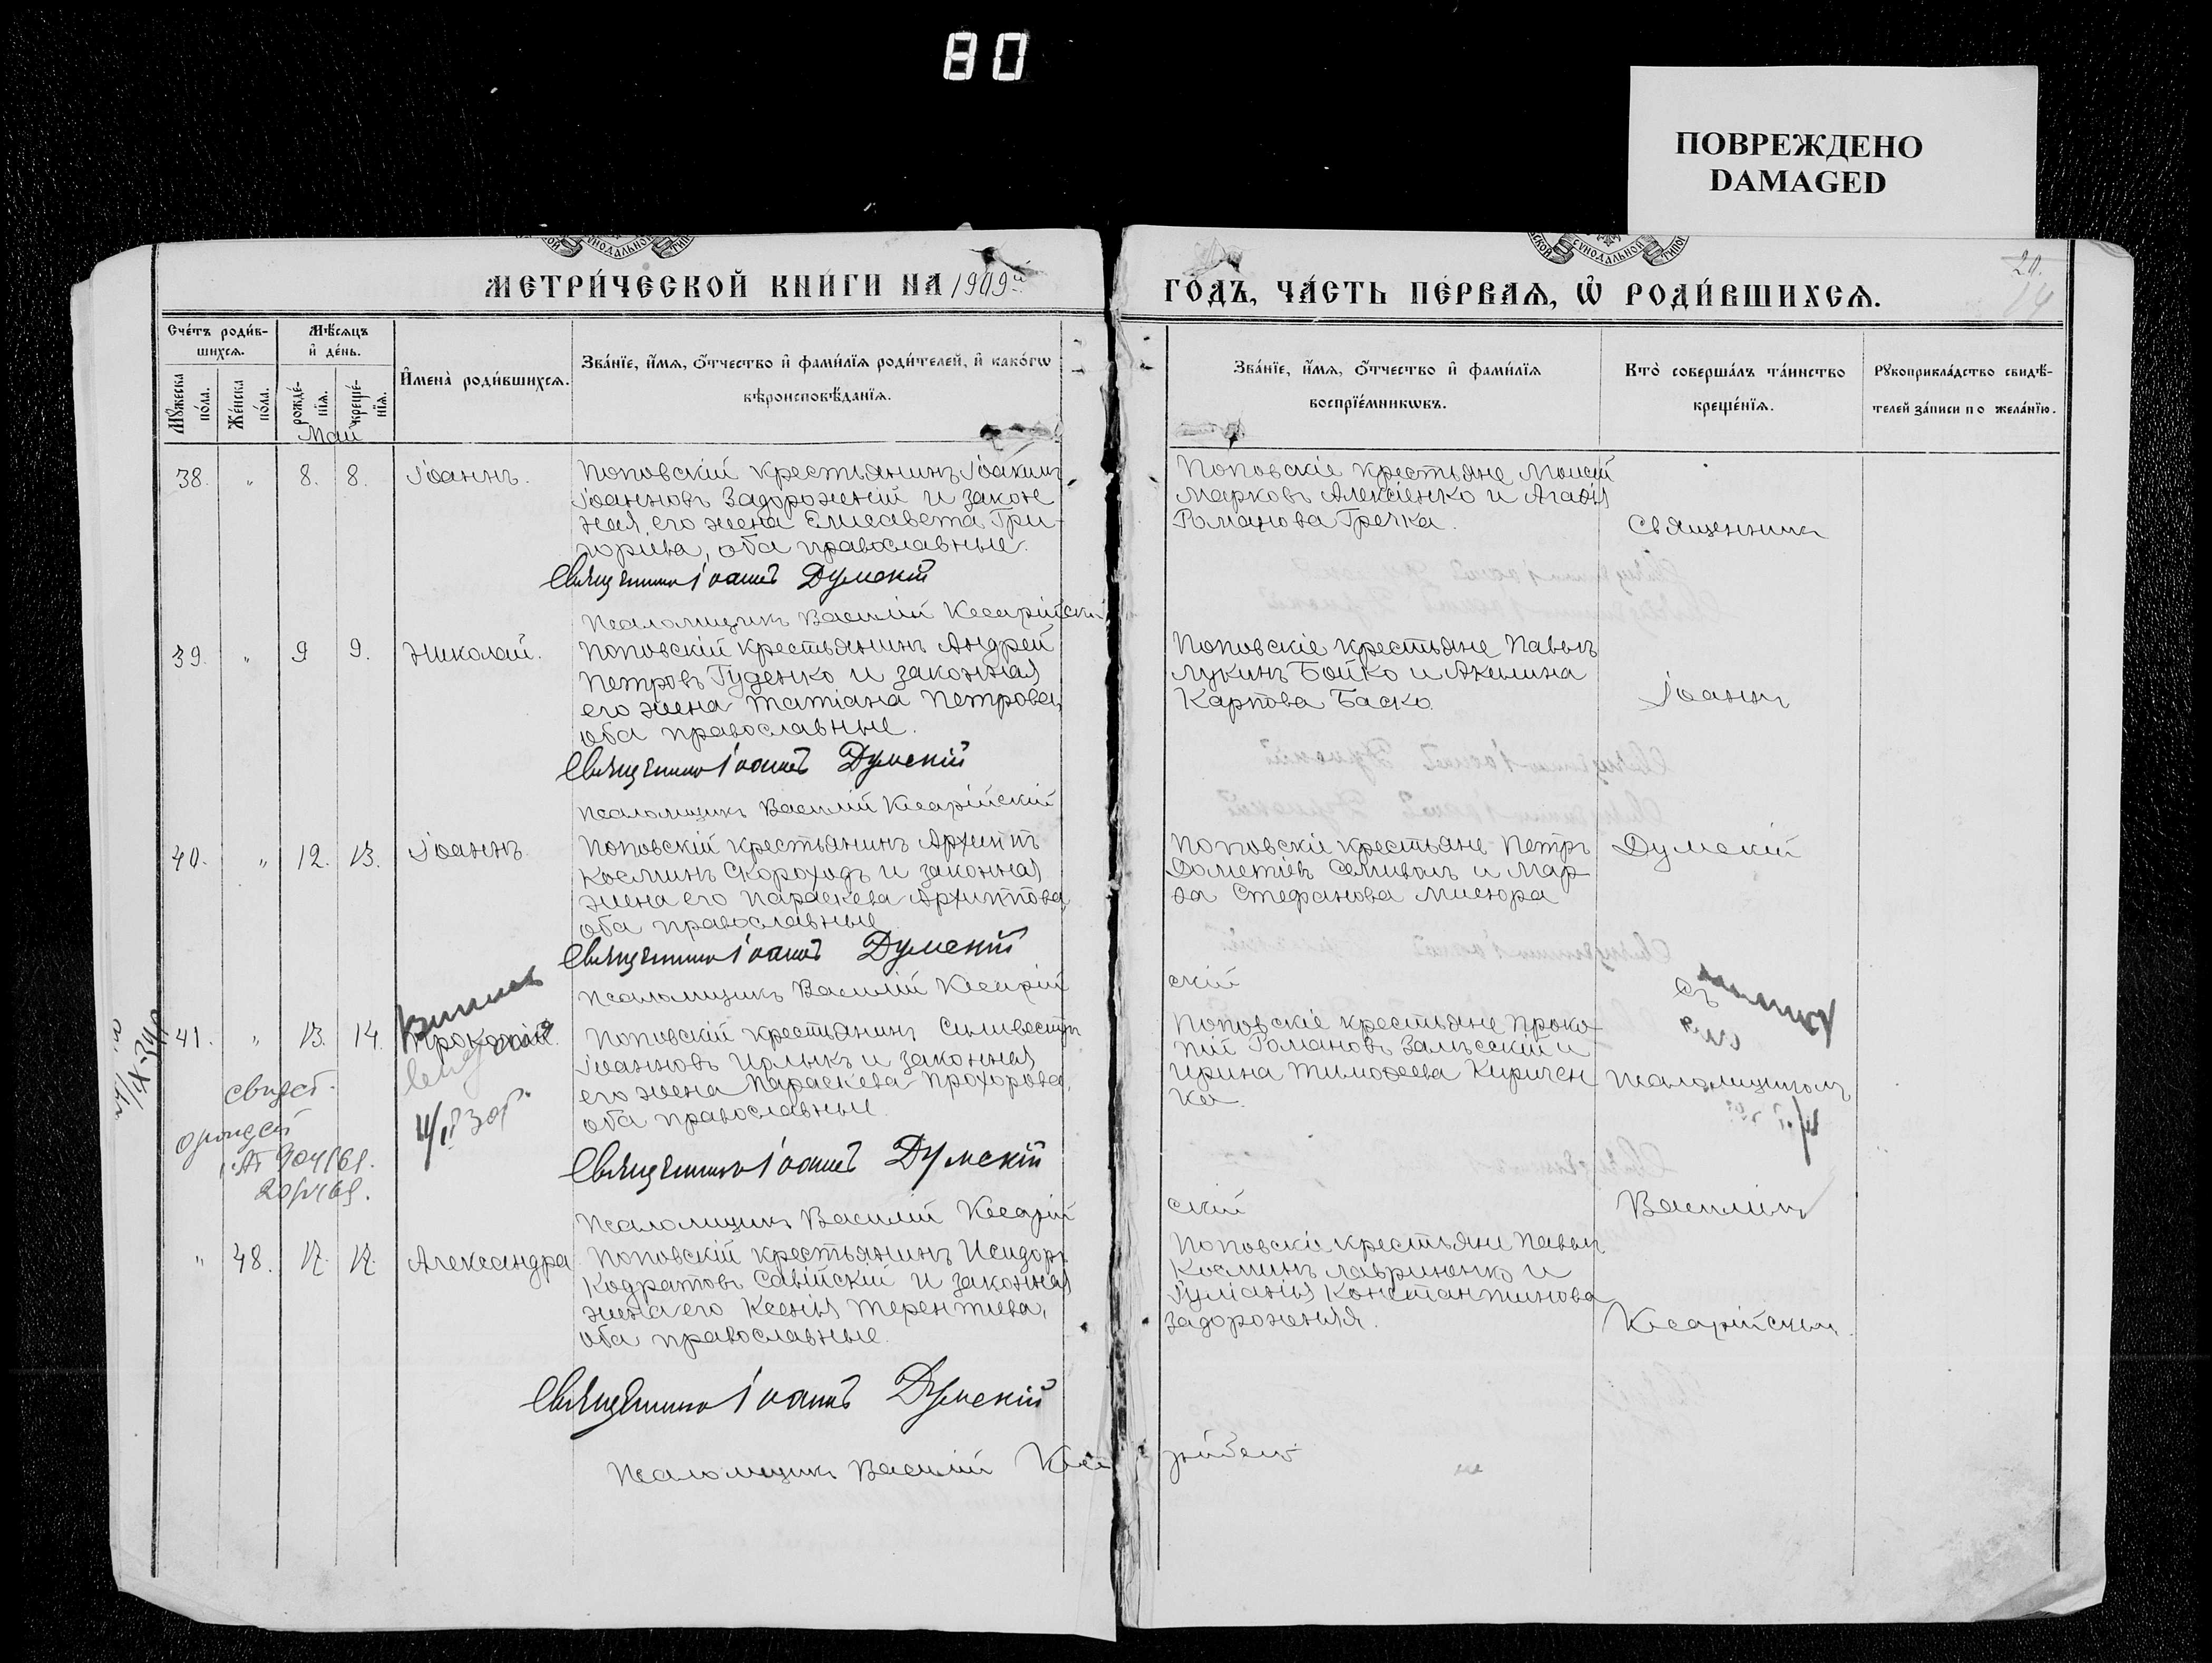 80
ПОВРЕЖДЕНО
DAMAGED
МЕТРИ́ЧЕСКОЙ КНИ́ГИ НА 1909й
ГО́ДЪ, ЧА́СТЬ ПЕ́РВАЯ, Ѡ҆ РОДИ́ВШИХСЯ.
20.
14
Сче́тъ роди́в-
шихся.
Мѣ́сяцъ
и҆ де́нь.
Мꙋ́жеска
по́ла.
Же́нска
по́ла.
рожде́-
нїя.
креще́-
нїя.
Май
И҆мена̀ роди́вшихся.
Зва́нїе, и҆́мя, ѻ҆́тчество и҆ фами́лїя роди́телей, и҆ како́гѡ
вѣроисповѣ́данїя.
Зва́нїе, и҆́мя, ѻ҆́тчество и҆ фами́лїя
воспрїе́мникѡвъ.
Кто̀ соверша́лъ та́инство
креще́нїя.
Рꙋкоприкла́дство свидѣ́-
телей за́писи по жела́нїю.
38. " 8. 8. Іоаннъ.
Поповскій крестьянинъ Іоакимъ
Іоанновъ Задорожній и закон
ная его жена Елисавета Гри-
горіева, оба православные.
Священникъ Іоаннъ Думскій
Псаломщикъ Василій Кесарійскій
Поповскіе крестьяне Моисей
Марковъ Алексіенко и Агаѳія
Романова Гречка.
Священникъ
39. " 9 9. Николай.
Поповскій крестьянинъ Андрей
Петровъ Гуденко и законная
его жена Татіана Петрова,
оба православные.
Священникъ Іоаннъ Думскій
Псаломщикъ Василій Кесарійскій
Поповскіе крестьяне Павелъ
Лукинъ Бойко и Акилина
Карпова Баско.
Іоаннъ
40. " 12. 13. Іоаннъ.
Поповскій крестьянинъ Архиппъ
Косминъ Скороходъ и законная
жена его Параскева Архиппова,
оба православные
Священникъ Іоаннъ Думскій
Псаломщикъ Василій Кесарій
скій
Поповскіе крестьяне Петръ
Дометіевъ Семиволъ и Мар-
ѳа Стефанова Мисюра
Думскій
съ
41. " 13. 14. Прокопій.
Поповскій крестьянинъ Сильвестръ
Іоанновъ Ирлыкъ и законная
его жена Параскева Прохорова,
оба православные.
Священникъ Іоаннъ Думскій
Псаломщикъ Василій Кесарій
скій
Поповскіе крестьяне Проко-
пій Романовъ Залѣсскій и
Ирина Тимоѳеева Киричен
ко.
псаломщикомъ
свидет.
Василіемъ
" 48. 17. 17. Александра
Поповскій крестьянинъ Исидоръ
Кодратовъ Савійскій и законная
жена его Ксенія Терентіева,
оба православные.
Священникъ Іоаннъ Думскій
Псаломщикъ Василій Кеса
рійскій
Поповскіе крестьяне Павелъ
Косминъ Лавриненко и
Іуліанія Константинова
Задорожняя.
Кесарійскимъ.